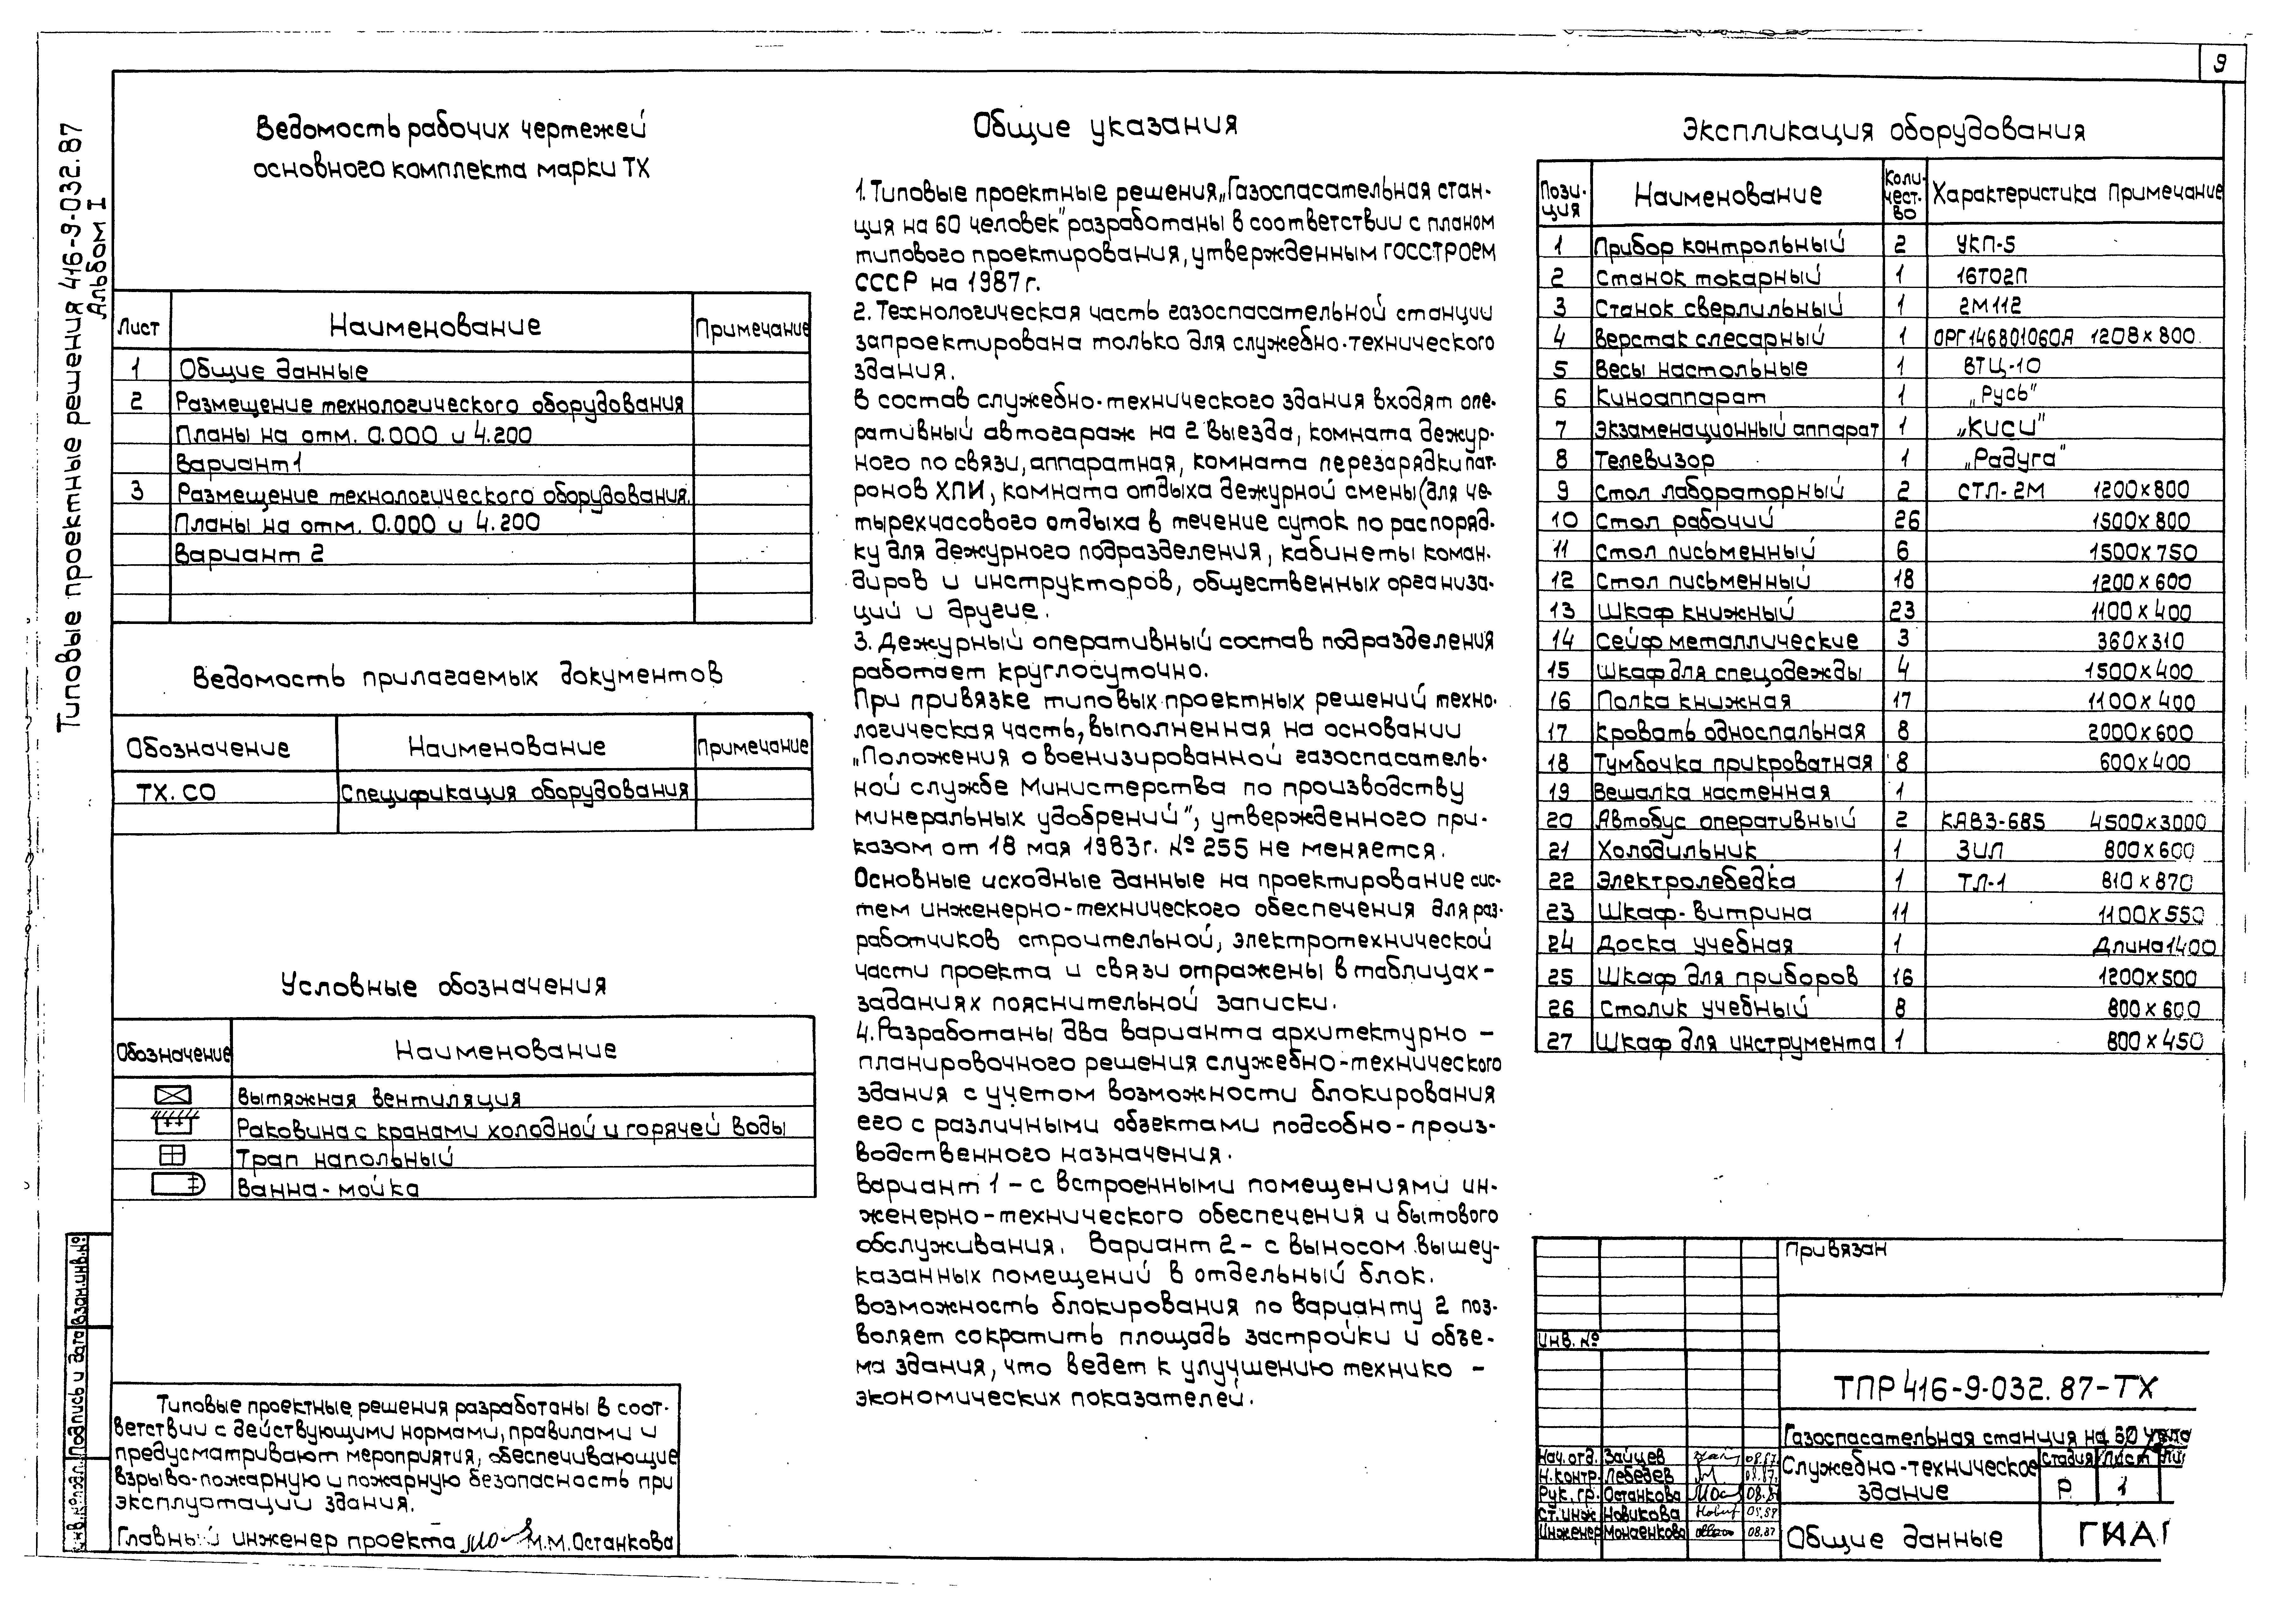 9
Типовые проектные решения 416-9-032.87
Альбом I
Ведомость рабочих чертежей
основного комплекта марки ТХ
Лист Наименование Примечание
1 Общие данные
2 Размещение технологического оборудования
Планы на отм. 0.000 и 4.200
Вариант 1
3 Размещение технологического оборудования.
Планы на отм. 0.000 и 4.200
Вариант 2
Ведомость прилагаемых документов
Обозначение Наименование Примечание
ТХ.СО Спецификация оборудования
Условные обозначения
Обозначение Наименование
Вытяжная вентиляция
Раковина с кранами холодной и горячей воды
Трап напольный
Ванна-мойка
Типовые проектные решения разработаны в соот-
ветствии с действующими нормами, правилами и
предусматривают мероприятия, обеспечивающие
взрыво-пожарную и пожарную безопасность при
эксплуатации здания.
Главный инженер проекта М.М.Останкова
Взам.инв.№
Подпись и дата
Инв.№подл.
Общие указания
1. Типовые проектные решения „Газоспасательная стан-
ция на 60 человек" разработаны в соответствии с планом
типового проектирования, утвержденным ГОССТРОЕМ
СССР на 1987г.
2. Технологическая часть газоспасательной станции
запроектирована только для служебно-технического
здания.
В состав служебно-технического здания входят опе-
ративный автогараж на 2 выезда, комната дежур-
ного по связи, аппаратная, комната перезарядки пат-
ронов ХПИ, комната отдыха дежурной смены (для че-
тырехчасового отдыха в течение суток по распоряд-
ку для дежурного подразделения, кабинеты коман-
диров и инструкторов, общественных организа-
ций и другие.
3. Дежурный оперативный состав подразделения
работает круглосуточно.
При привязке типовых проектных решений техно-
логическая часть, выполненная на основании
„Положения о военизированной газоспасатель-
ной службе Министерства по производству
минеральных удобрений", утвержденного при-
казом от 18 мая 1983г. № 255 не меняется.
Основные исходные данные на проектирование сис-
тем инженерно-технического обеспечения для раз-
работчиков строительной, электротехнической
части проекта и связи отражены в таблицах-
заданиях пояснительной записки.
4. Разработаны два варианта архитектурно -
планировочного решения служебно-технического
здания с учетом возможности блокирования
его с различными объектами подсобно-произ-
водственного назначения.
Вариант 1 - с встроенными помещениями ин-
женерно-технического обеспечения и бытового
обслуживания. Вариант 2 - с выносом вышеу-
казанных помещений в отдельный блок.
Возможность блокирования по варианту 2 поз-
воляет сократить площадь застройки и объе-
ма здания, что ведет к улучшению технико -
экономических показателей.
Экспликация оборудования
Пози- Наименование Коли- Характеристика Примечание
ция чест-
во
1 Прибор контрольный 2 УКП-5
2 Станок токарный 1 16Т02П
3 Станок сверлильный 1 2М112
4 Верстак слесарный 1 ОРГ146801060А 1208×800
5 Весы настольные 1 ВТЦ-10
6 Киноаппарат 1 „Русь"
7 Экзаменационный аппарат 1 „КИСИ"
8 Телевизор 1 „Радуга"
9 Стол лабораторный 2 СТЛ-2М 1200×800
10 Стол рабочий 26 1500×800
11 Стол письменный 6 1500×750
12 Стол письменный 18 1200×600
13 Шкаф книжный 23 1100×400
14 Сейф металлические 3 360×310
15 Шкаф для спецодежды 4 1500×400
16 Полка книжная 17 1100×400
17 Кровать односпальная 8 2000×600
18 Тумбочка прикроватная 8 600×400
19 Вешалка настенная 1
20 Автобус оперативный 2 КАВЗ-685 4500×3000
21 Холодильник 1 ЗИЛ 800×600
22 Электролебедка 1 ТЛ-1 810×870
23 Шкаф-витрина 11 1100×550
24 Доска учебная 1 Длина 1400
25 Шкаф для приборов 16 1200×500
26 Столик учебный 8 800×600
27 Шкаф для инструмента 1 800×450
Привязан
Инв. №
ТПР 416-9-032.87-ТХ
Газоспасательная станция на 60
Нач.отд. Зайцев 08.87
Н.контр. Лебедев 08.87
Рук.гр. Останкова 08.87
Ст.инж Новикова 08.87
Инженер Монаенкова 08.87
Служебно-техническое
здание
Стадия Лист
Р 1
Общие данные
ГИАП